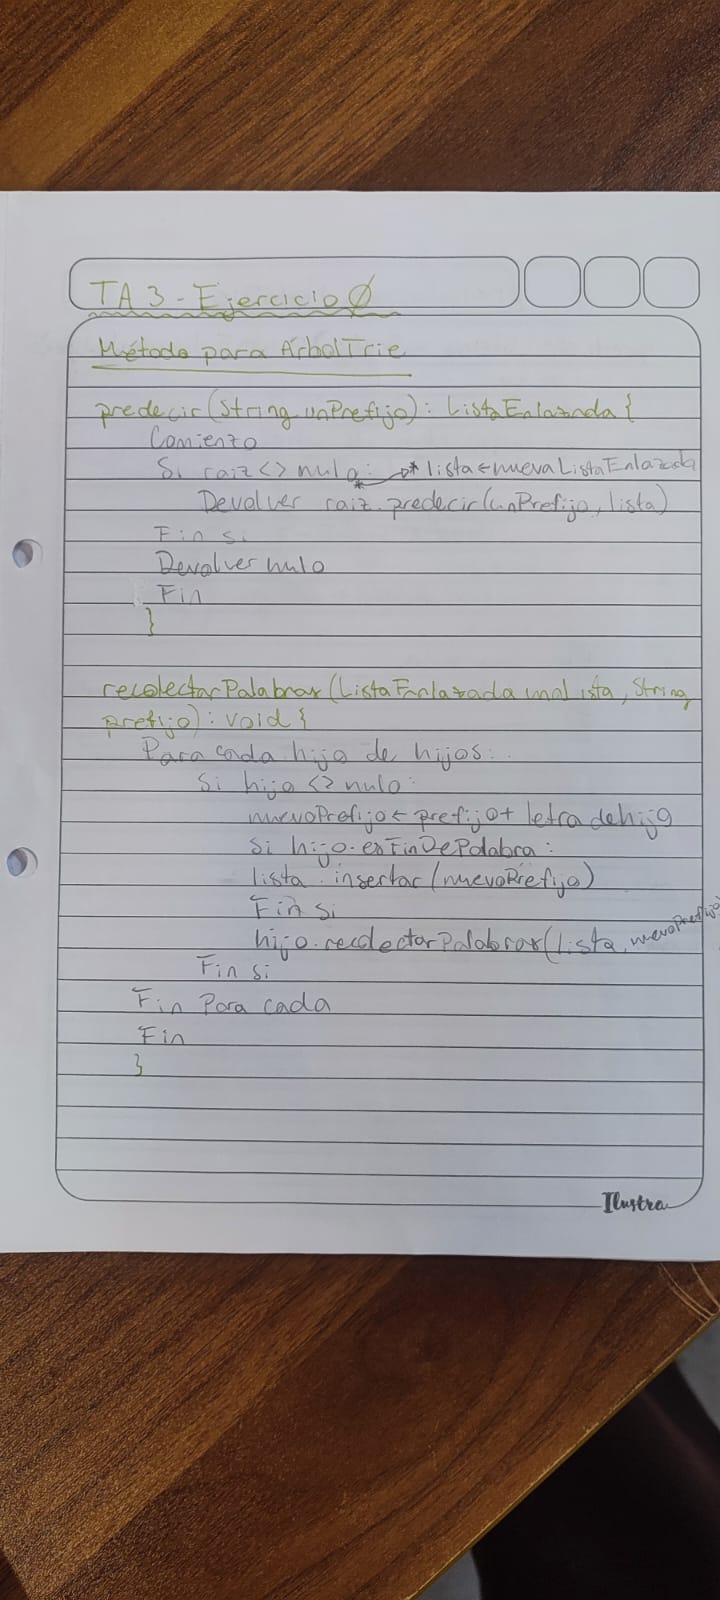 TA3-Ejercicio 0
Método para ArbolTrie
predecir(String unPrefijo): ListaEnlazada {
Comienzo
Si raiz <> nulo: * lista ← nueva ListaEnlazada
Devolver raiz.predecir(unPrefijo, lista)
Fin si
Devolver nulo
Fin
}
recolectarPalabras (ListaEnlazada unaLista, String
prefijo): void {
Para cada hijo de hijos:
Si hijo <> nulo:
nuevoPrefijo ← prefijo + letra de hijo
Si hijo.esFinDePalabra:
lista.insertar(nuevoPrefijo)
Fin si
hijo.recolectarPalabras(lista, nuevoPrefijo)
Fin si
Fin Para cada
Fin
}
Ilustra